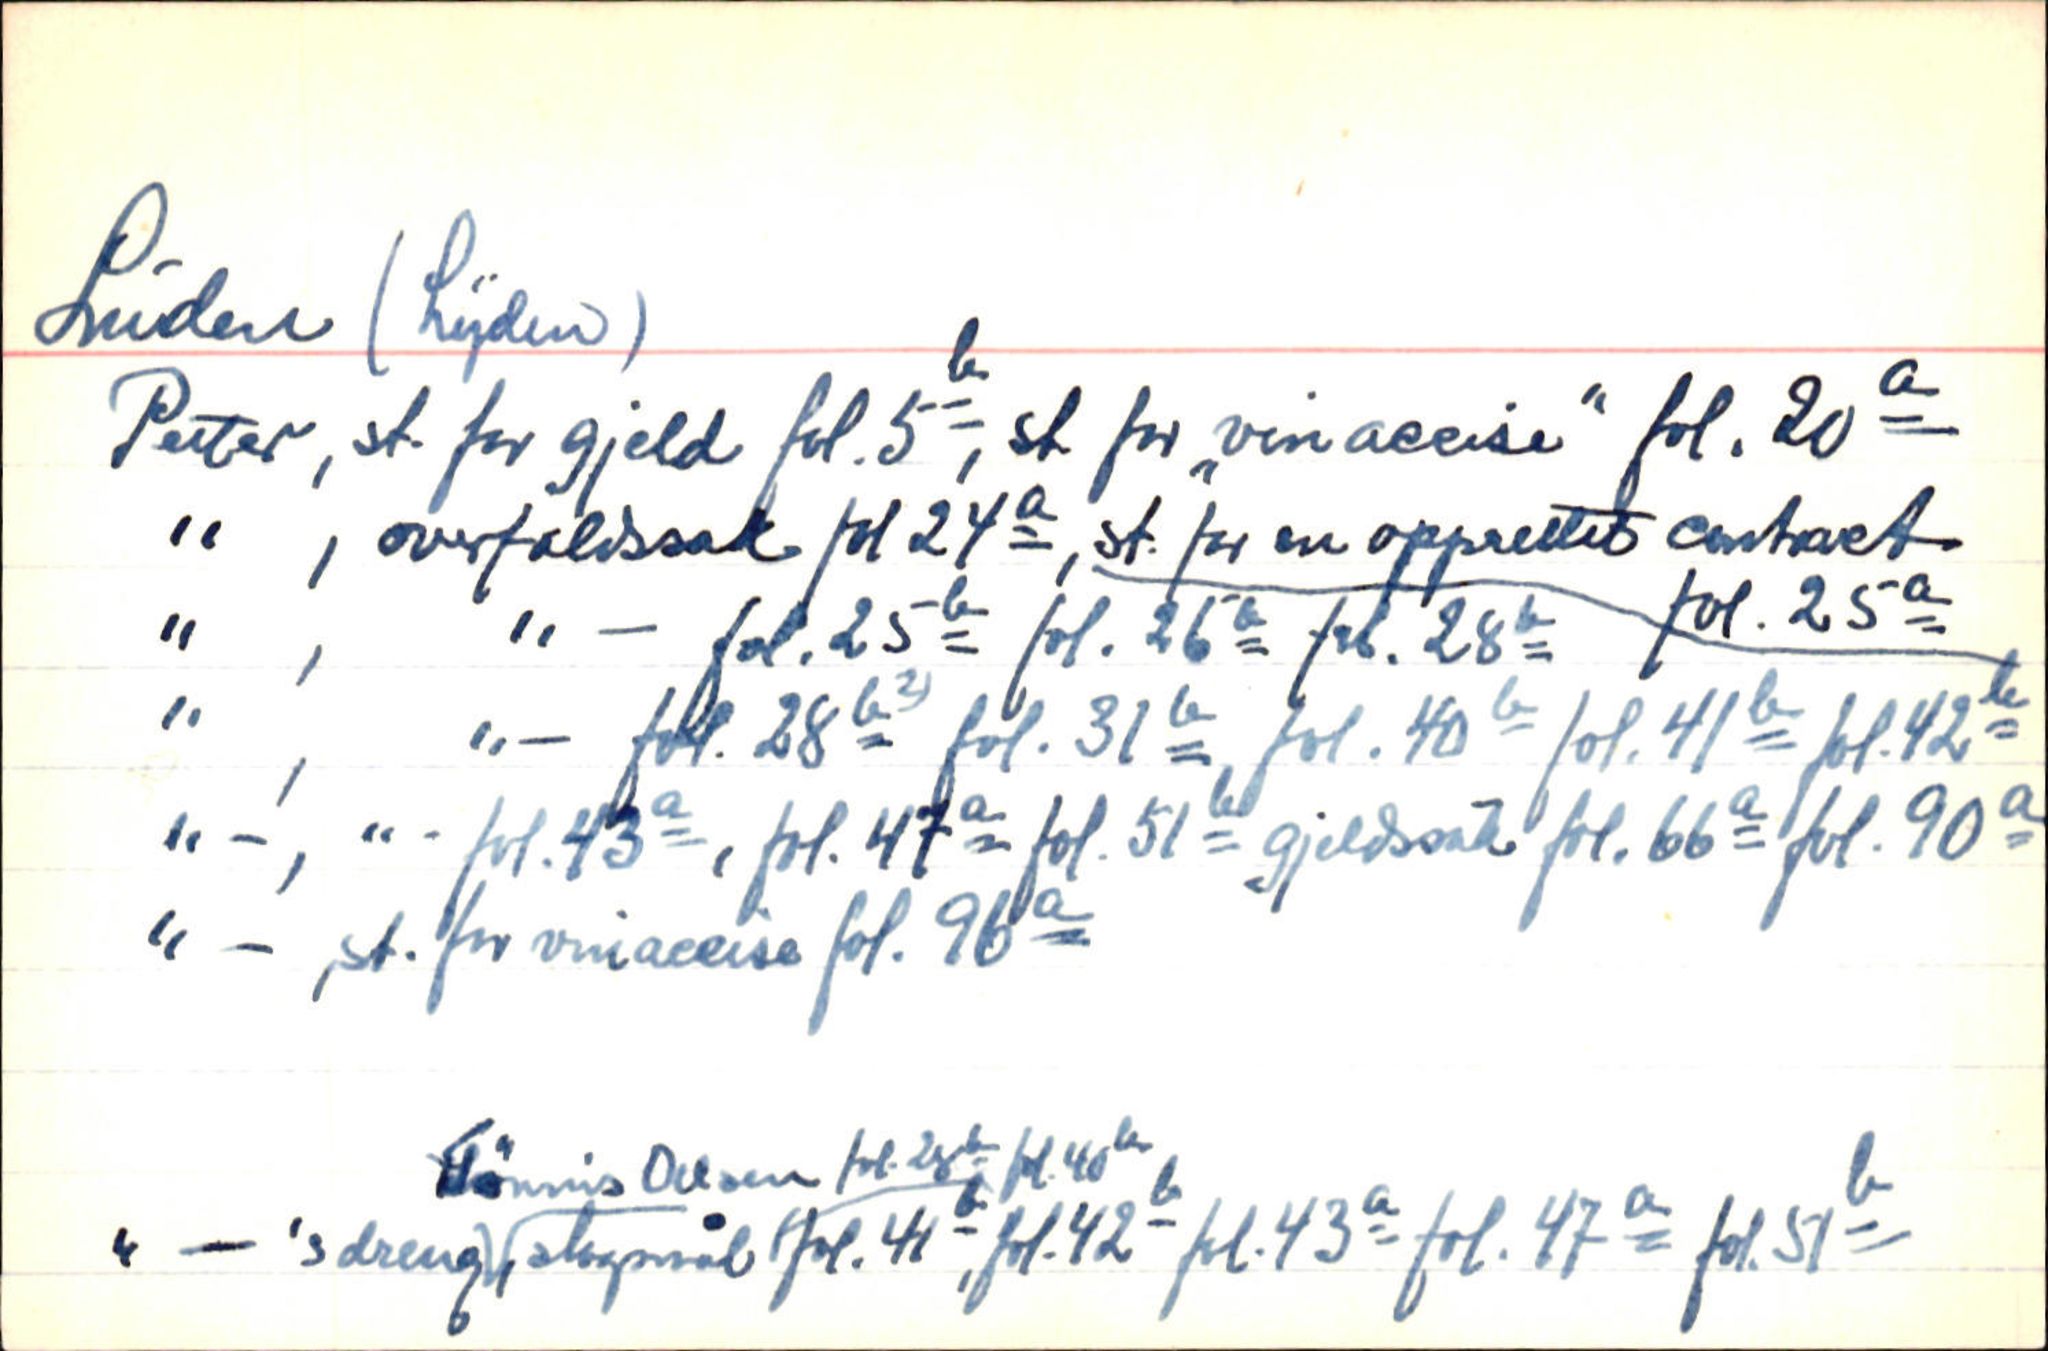 Lüden (Lÿden)
Peiter, st. for gjeld fol. 5b, st for „vinaccise“ fol. 20a
" , overfaldssak fol 24a, st. for en opprettet contract
fol. 25a
" , " — fol. 25b fol. 26b fol. 28b
" , " — fol. 28b 2) fol. 31b, fol. 40b fol. 41b fol. 42b
" —, " - fol. 43a, fol. 47a fol. 51b gjeldssak fol. 66a fol. 90a
" — , st. for vinaccise fol. 96a
Tönnis Olsen fol. 28b fol. 40b
" — 's dreng, slagsmål fol. 41b, fol. 42b fol. 43a fol. 47a fol. 51b